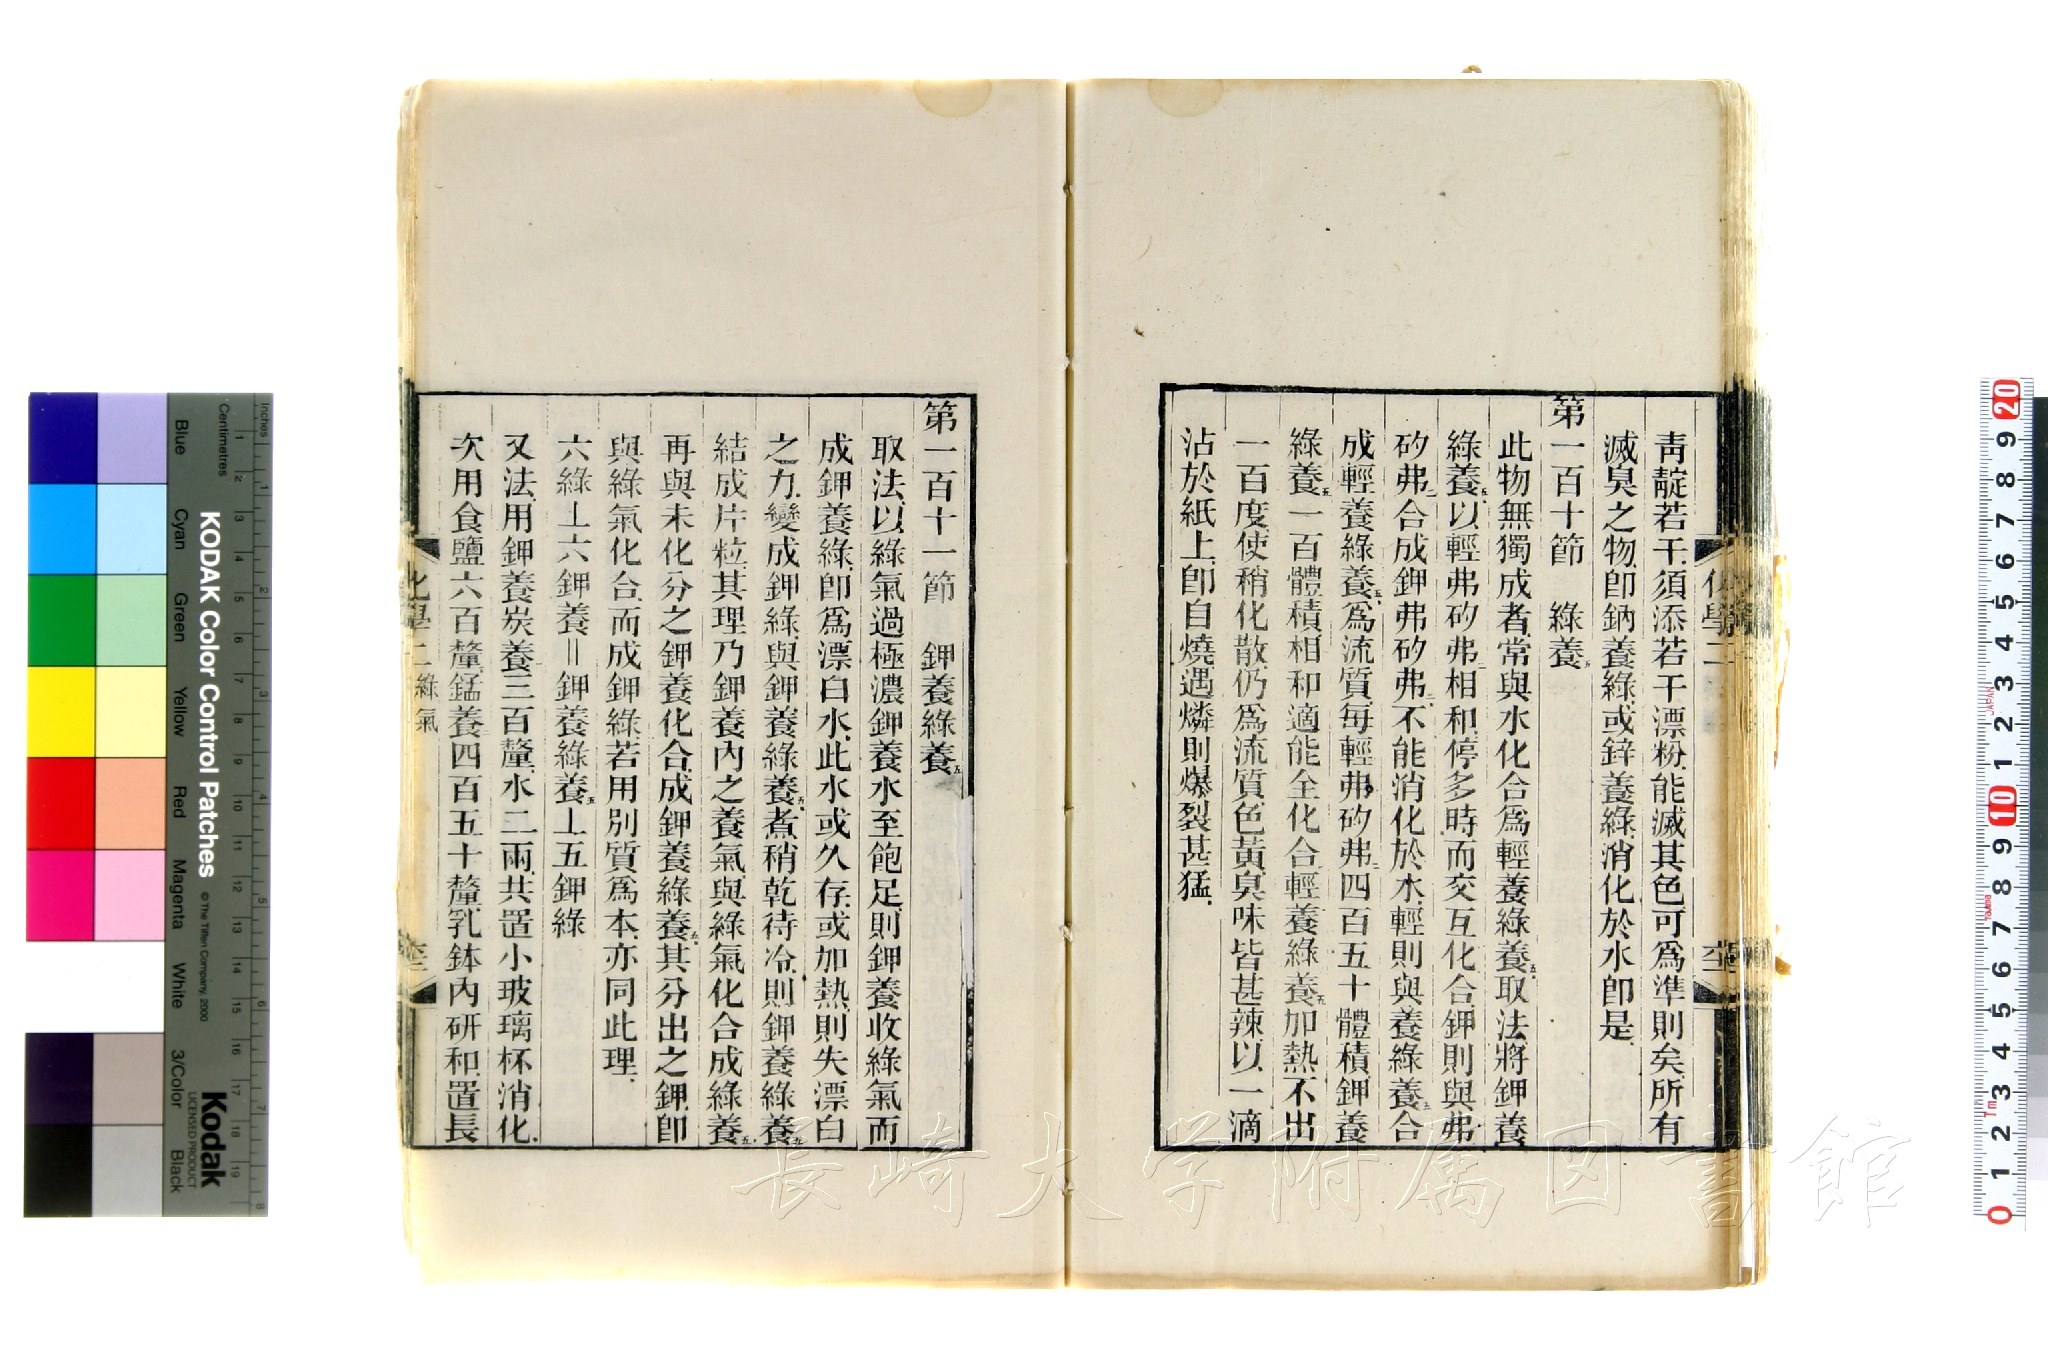 靑靛若干須添若干漂粉能滅其色可爲準則矣所有
滅臭之物卽鈉養綠或鋅養綠消化於水卽是
第一百十節　綠養五
此物無獨成者常與水化合爲輕養綠養五取法將鉀養
綠養五以輕弗矽弗二相和停多時而交互化合鉀則與弗
矽弗二合成鉀弗矽弗二不能消化於水輕則與養綠養五合
成輕養綠養五爲流質每輕弗矽弗二四百五十體積鉀養
綠養五一百體積相和適能全化合輕養綠養五加熱不出
一百度使稍化散仍爲流質色黃臭味皆甚辣以一滴
沾於紙上卽自燒遇燐則爆裂甚猛
化學二
第一百十一節　鉀養綠養五
取法以綠氣過極濃鉀養水至飽足則鉀養收綠氣而
成鉀養綠卽爲漂白水此水或久存或加熱則失漂白
之力變成鉀綠與鉀養綠養五煮稍乾待冷則鉀養綠養五
結成片粒其理乃鉀養內之養氣與綠氣化合成綠養五
再與未化分之鉀養化合成鉀養綠養五其分出之鉀卽
與綠氣化合而成鉀綠若用別質爲本亦同此理
六綠⊥六鉀養＝鉀養綠養五⊥五鉀綠
又法用鉀養炭養二三百釐水二兩共置小玻璃杯消化
次用食鹽六百釐錳養四百五十釐乳鉢內研和置長
化學二　綠氣
KODAK Color Control Patches
© The Tiffen Company, 2000
Kodak
LICENSED PRODUCT
Inches
Centimetres
Blue
Cyan
Green
Yellow
Red
Magenta
White
3/Color
Black
JAPAN
長崎大学附属図書館